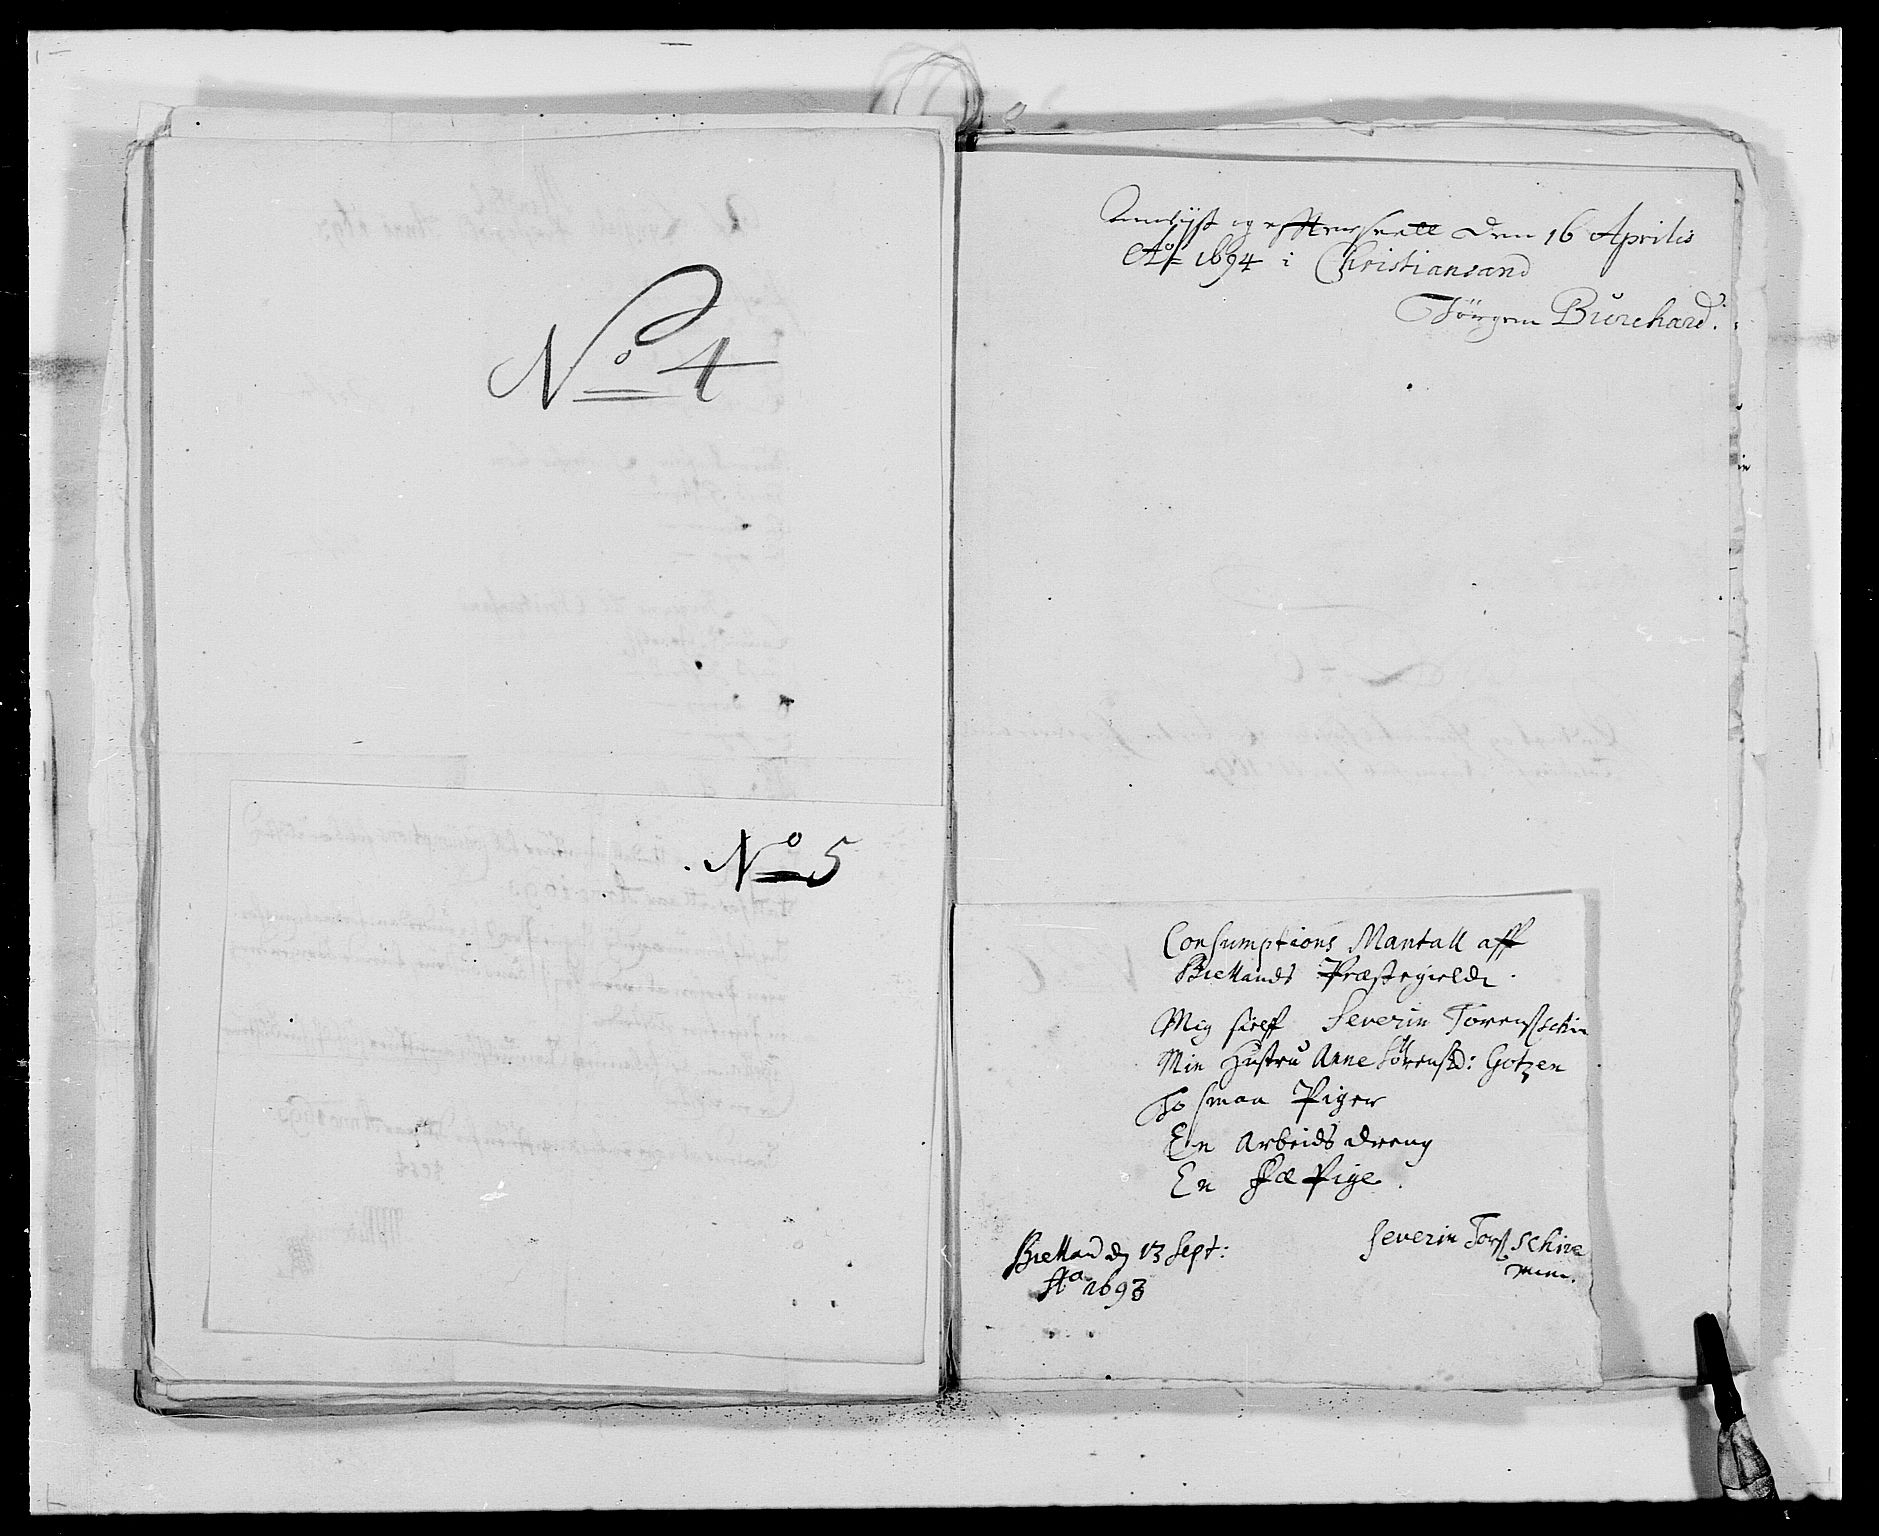 No 4
No 5
Anvijst og efftterseett den 16 Aprilis
Ao 1694 i Christiansand
Jörgen Burchard.
Consumptions Mantall aff
Biellands Præstegield
Mig sielff Severin Torenss Schive
Min Hustru Anne Sörensd: Gotzen
To smaa Piger
En Arbeids dreng
En Fæ Pige.
Bielland dn 13 Sept:
Ao 1693
Severin Torss Schive
mm.